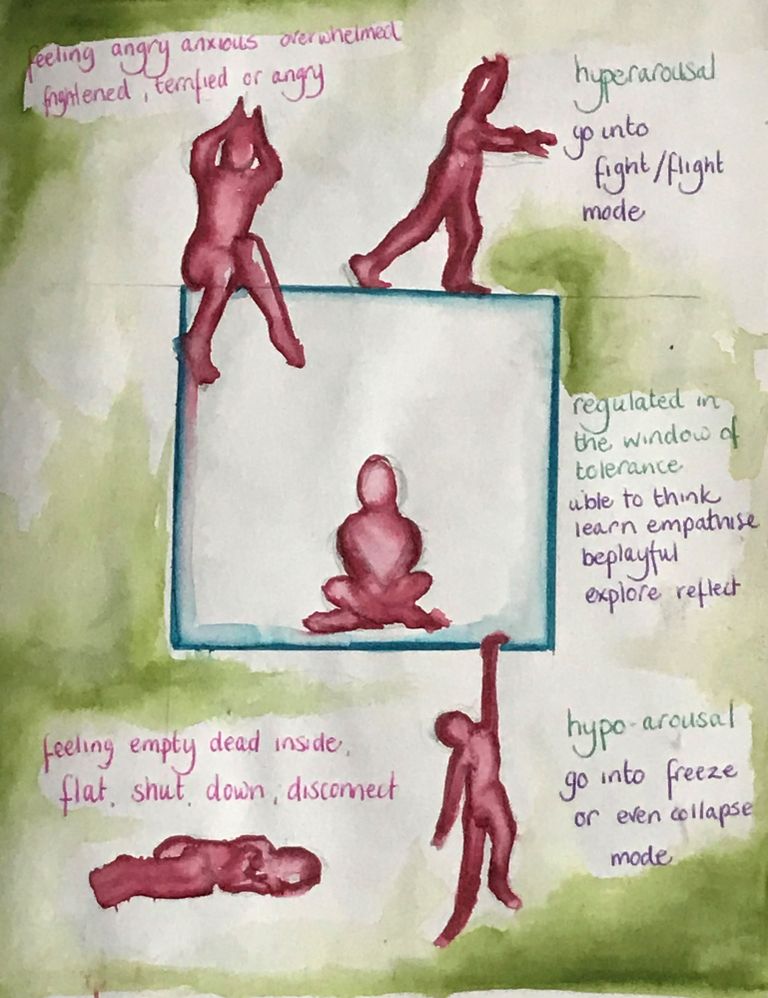 feeling angry anxious overwhelmed
frightened, terrified or angry
hyperarousal
go into
fight/flight
mode
regulated in
the window of
tolerance
able to think
learn empathise
beplayful
explore reflect
feeling empty dead inside,
flat, shut, down, disconnect
hypo-arousal
go into freeze
or even collapse
mode